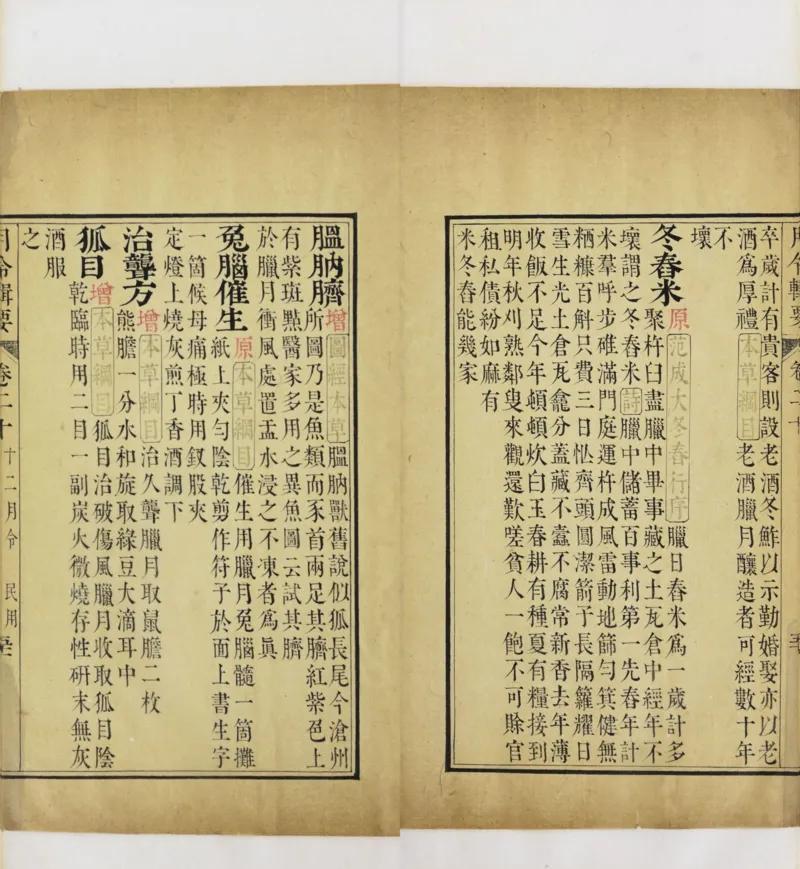 月令輯要
卷二十
卒歲計有貴客則設老酒冬鮓以示勤婚娶亦以老
酒爲厚禮本草綱目老酒臘月釀造者可經數十年
不
壞
冬舂米原范成大冬舂行序臘日舂米爲一歲計多
聚杵臼盡臘中畢事藏之土瓦倉中經年不
壞謂之冬舂米詩臘中儲蓄百事利第一先舂年計
米羣呼步碓滿門庭運杵成風雷動地篩勻箕健無
粞糠百斛只費三日忙齊頭圓潔箭子長隔籮耀日
雪生光土倉瓦龕分蓋藏不蠹不腐常新香去年薄
收飯不足今年頓頓炊白玉春耕有種夏有糧接到
明年秋刈熟鄰叟來觀還歎嗟貧人一飽不可賒官
租私債紛如麻有
米冬舂能幾家
膃肭臍增圖經本草膃肭獸舊說似狐長尾今滄州
所圖乃是魚類而豕首兩足其臍紅紫色上
有紫斑點醫家多用之異魚圖云試其臍
於臘月衝風處置盂水浸之不凍者爲眞
兔腦催生原本草綱目催生用臘月兔腦髓一箇攤
紙上夾勻陰乾剪作符子於面上書生字
一箇候母痛極時用釵股夾
定燈上燒灰煎丁香酒調下
治聾方增本草綱目治久聾臘月取鼠膽二枚
熊膽一分水和旋取綠豆大滴耳中
狐目增本草綱目狐目治破傷風臘月收取狐目陰
乾臨時用二目一副炭火微燒存性研末無灰
酒服
之
月令輯要
卷二十
十二月令
民用